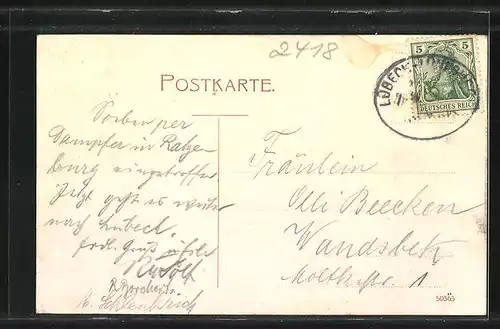 2418
POSTKARTE.
5 5
DEUTSCHES REICH
LÜBECK
Soeben per
Dampfer in Ratze-
burg eingetroffen
Jetzt geht es weiter
nach Lübeck.
Herzl. Gruß
Rudolf
Fräulein
Olli Beecken
Wandsbek
Moltkestr. 1
50505